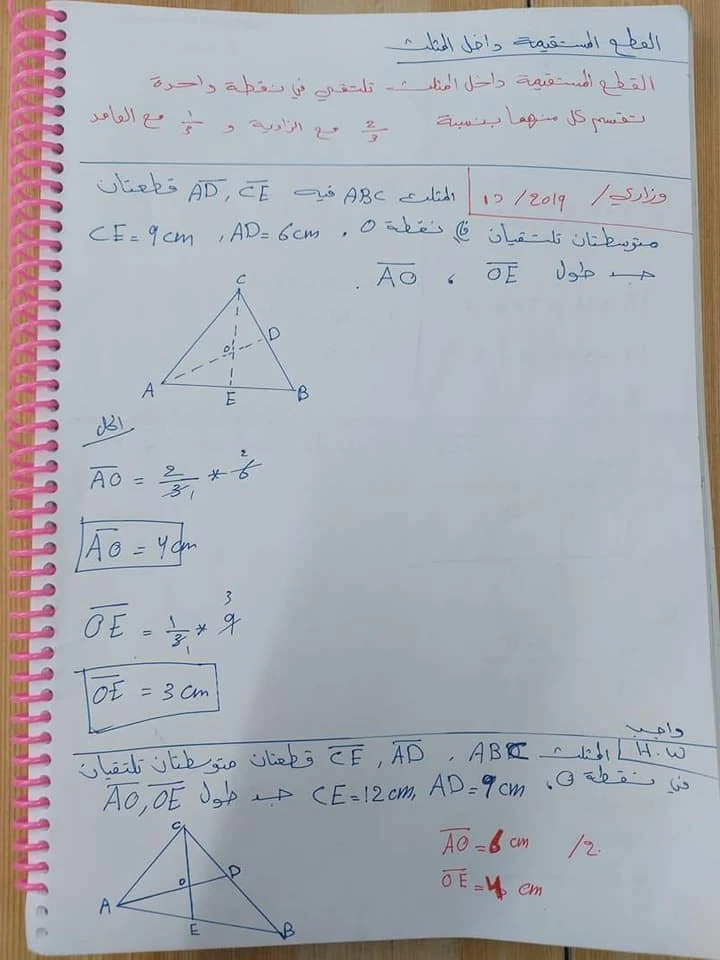 القطع المستقيمة داخل المثلث
القطع المستقيمة داخل المثلث تلتقي في نقطة واحدة
تقسم كل منهما بنسبة 2/3 مع الزاوية و 1/3 مع القاعد
وزاري / 2019 / د1 المثلث ABC فيه AD, CE قطعتان
متوسطتان تلتقيان في نقطة O، CE = 9cm, AD = 6cm
جد طول OE، AO.
C
D
O
A
E
B
الحل
AO = 2/3 * 6
2
1
AO = 4 cm
3
OE = 1/3 * 9
1
OE = 3 cm
واجب
H.W المثلث ABC، CE, AD قطعتان متوسطتان تلتقيان
في نقطة O، CE=12cm, AD=9cm جد طول AO, OE
C
D
O
A
E
B
AO = 6 cm /2.
OE = 4 cm